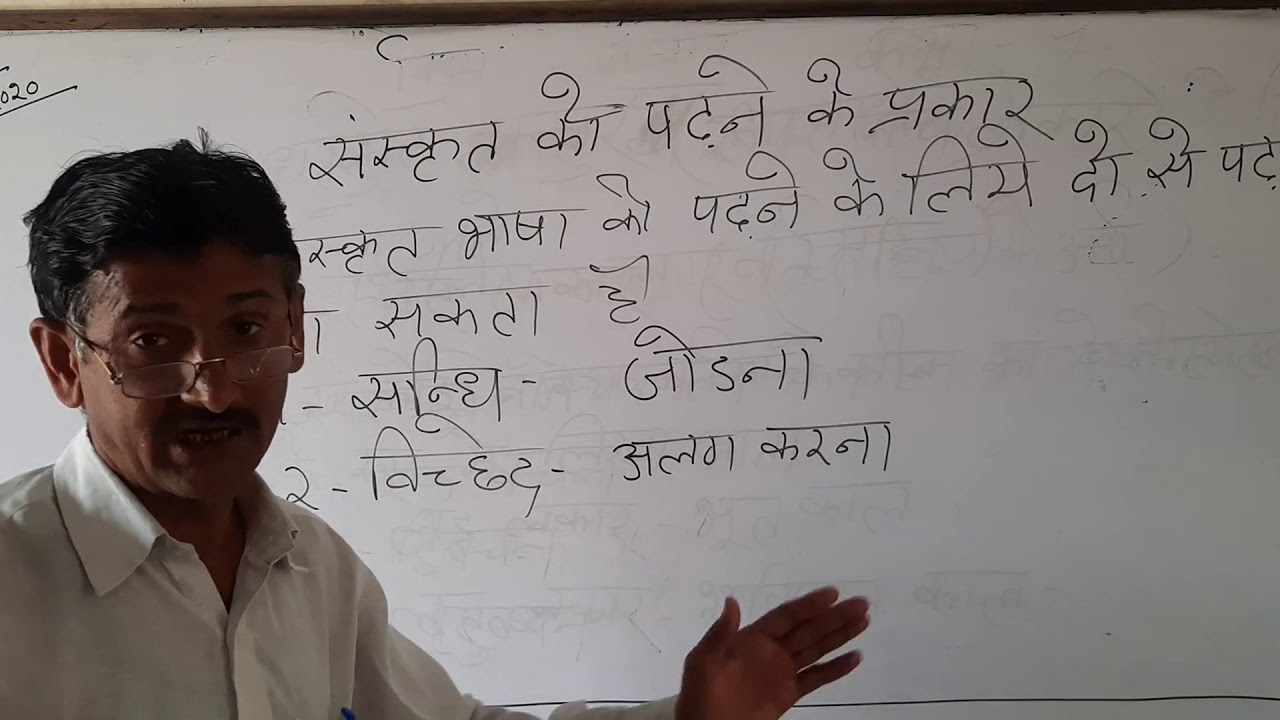 2020
संस्कृत को पढ़ने के प्रकार
स्कृत भाषा को पढ़ने के लिये दो से पढ़
ा सकता है
- सन्धि - जोडना
२ - विच्छेद - अलग करना